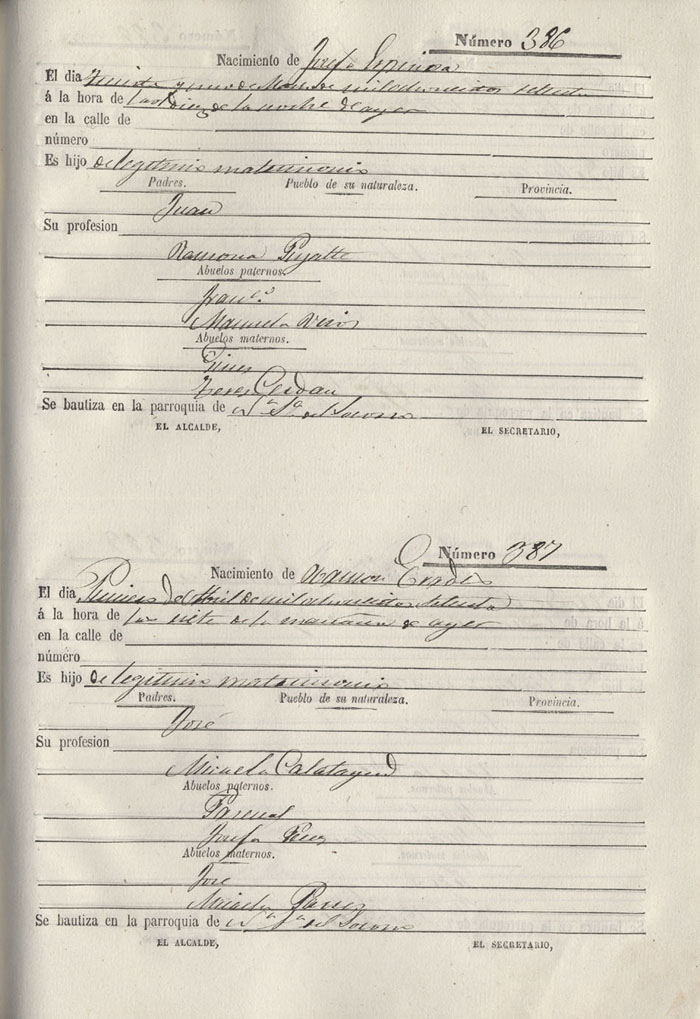 Número 386
Nacimiento de Josefa Espinosa
El dia Treinta y uno de Marzo de mil ochocientos setenta
á la hora de las diez de la noche de ayer
en la calle de
número
Es hijo de legitimo matrimonio
Padres. Pueblo de su naturaleza. Provincia.
Juan
Su profesion
Ramona
Abuelos paternos.
Franco.
Manuela
Abuelos maternos.
Gines
Teresa Cerdan
Se bautiza en la parroquia de Na. Sa. del Socorro
EL ALCALDE, EL SECRETARIO,
Número 387
Nacimiento de Ramon
El dia Primero de Abril de mil ochocientos setenta
á la hora de las siete de la mañana de ayer
en la calle de
número
Es hijo de legitimo matrimonio
Padres. Pueblo de su naturaleza. Provincia.
José
Su profesion
Micaela Calatayud
Abuelos paternos.
Pascual
Josefa Perez
Abuelos maternos.
José
Micaela
Se bautiza en la parroquia de Na. Sa. del Socorro
EL ALCALDE, EL SECRETARIO,